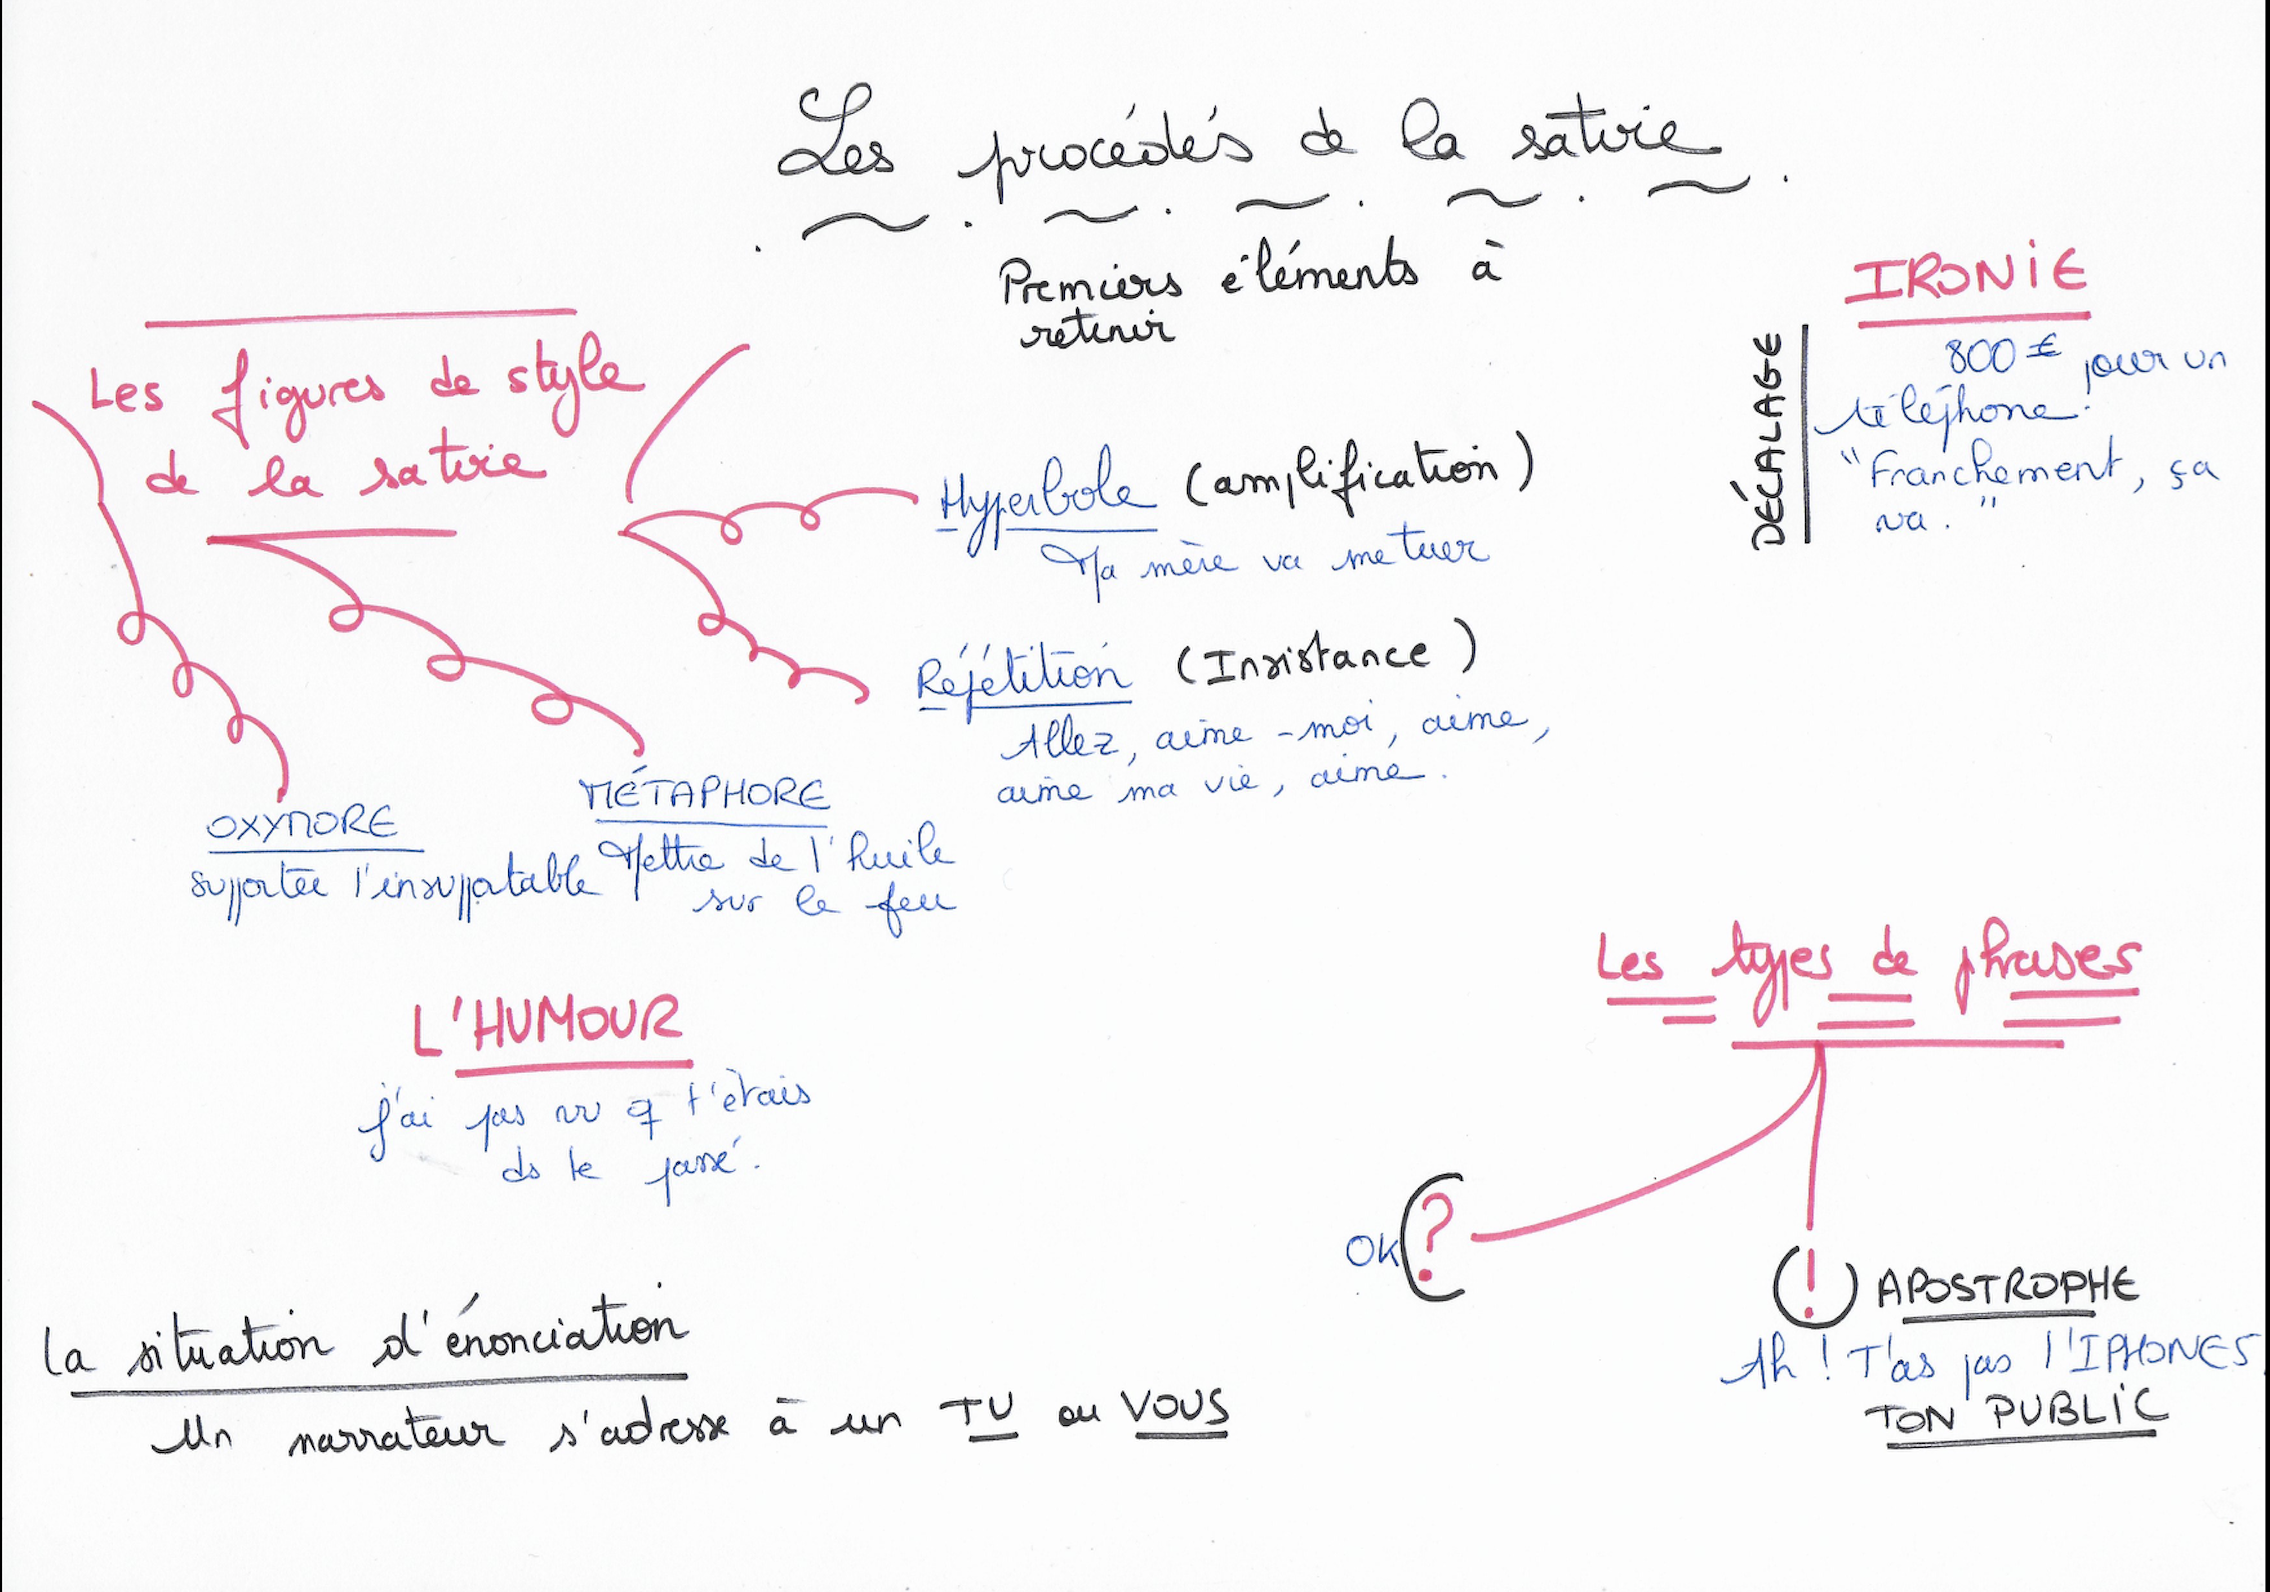 Les procédés de la satire
Premiers éléments à
retenir
Les figures de style
de la satire
Hyperbole (amplification)
Ma mère va me tuer
Répétition (Insistance)
Allez, aime-moi, aime,
aime ma vie, aime.
OXYMORE
supporter l'insupportable
MÉTAPHORE
Mettre de l'huile
sur le feu
IRONIE
DÉCALAGE
800 € pour un
téléphone.
"Franchement, ça
va."
L'HUMOUR
j'ai pas vu q t'étais
ds le passé.
Les types de phrases
OK ?
! APOSTROPHE
Ah ! T'as pas l'IPHONE5
TON PUBLIC
La situation d'énonciation
Un narrateur s'adresse à un TU ou VOUS